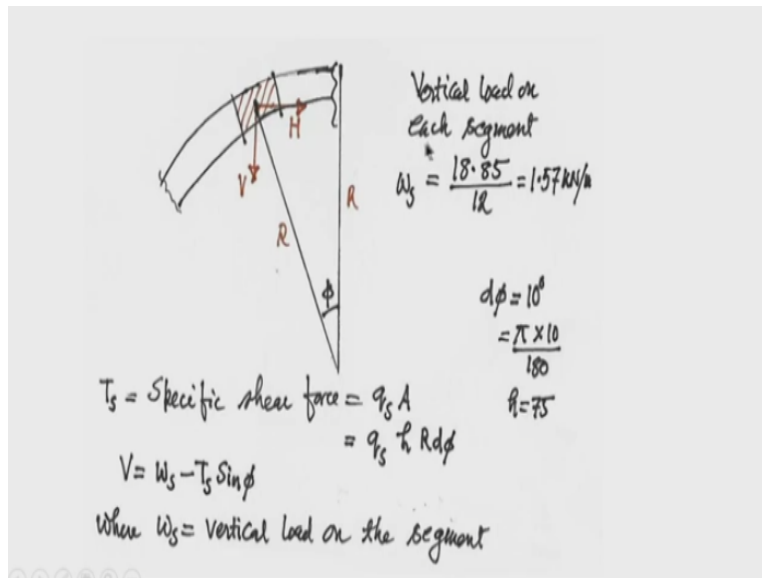 Vertical load on
each segment
ω_s = 18.85 / 12 = 1.57 kN/m
H
V
R
R
ϕ
dϕ = 10°
= π × 10 / 180
h = 75
T_s = Specific shear force = q_s A
= q_s h R dϕ
V = W_s − T_s Sinϕ
where W_s = vertical load on the segment